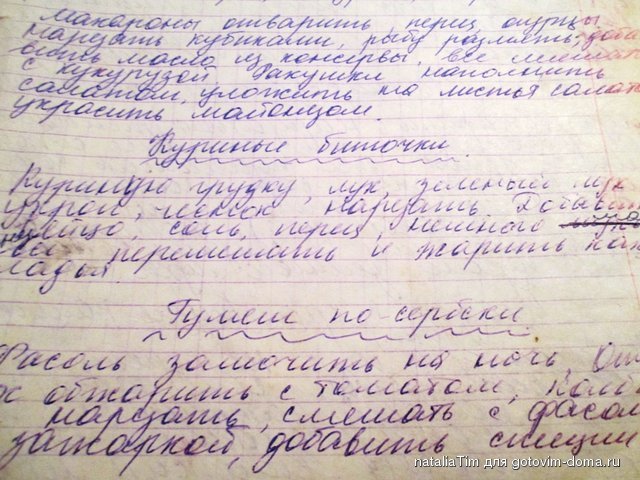 макароны отварить, перец огурцы
нарезать кубиками, рыбу размять, доба
вить масло из консервы, все
с кукурузой. Ракушки наполнить
салатом, уложить на листья салат
украсить майонезом.
Куриные биточки.
Куриную грудку, лук, зеленый лук
укроп, чеснок нарезать. Добавит
яйцо, соль, перец, немного
перемешать и жарить как
ладьи.
Гуляш по-сербски.
Фасоль замочить на ночь,
обжарить с томатом, колб
нарезать, смешать с фасол
зажаркой, добавить специи
nataliaTim для gotovim-doma.ru